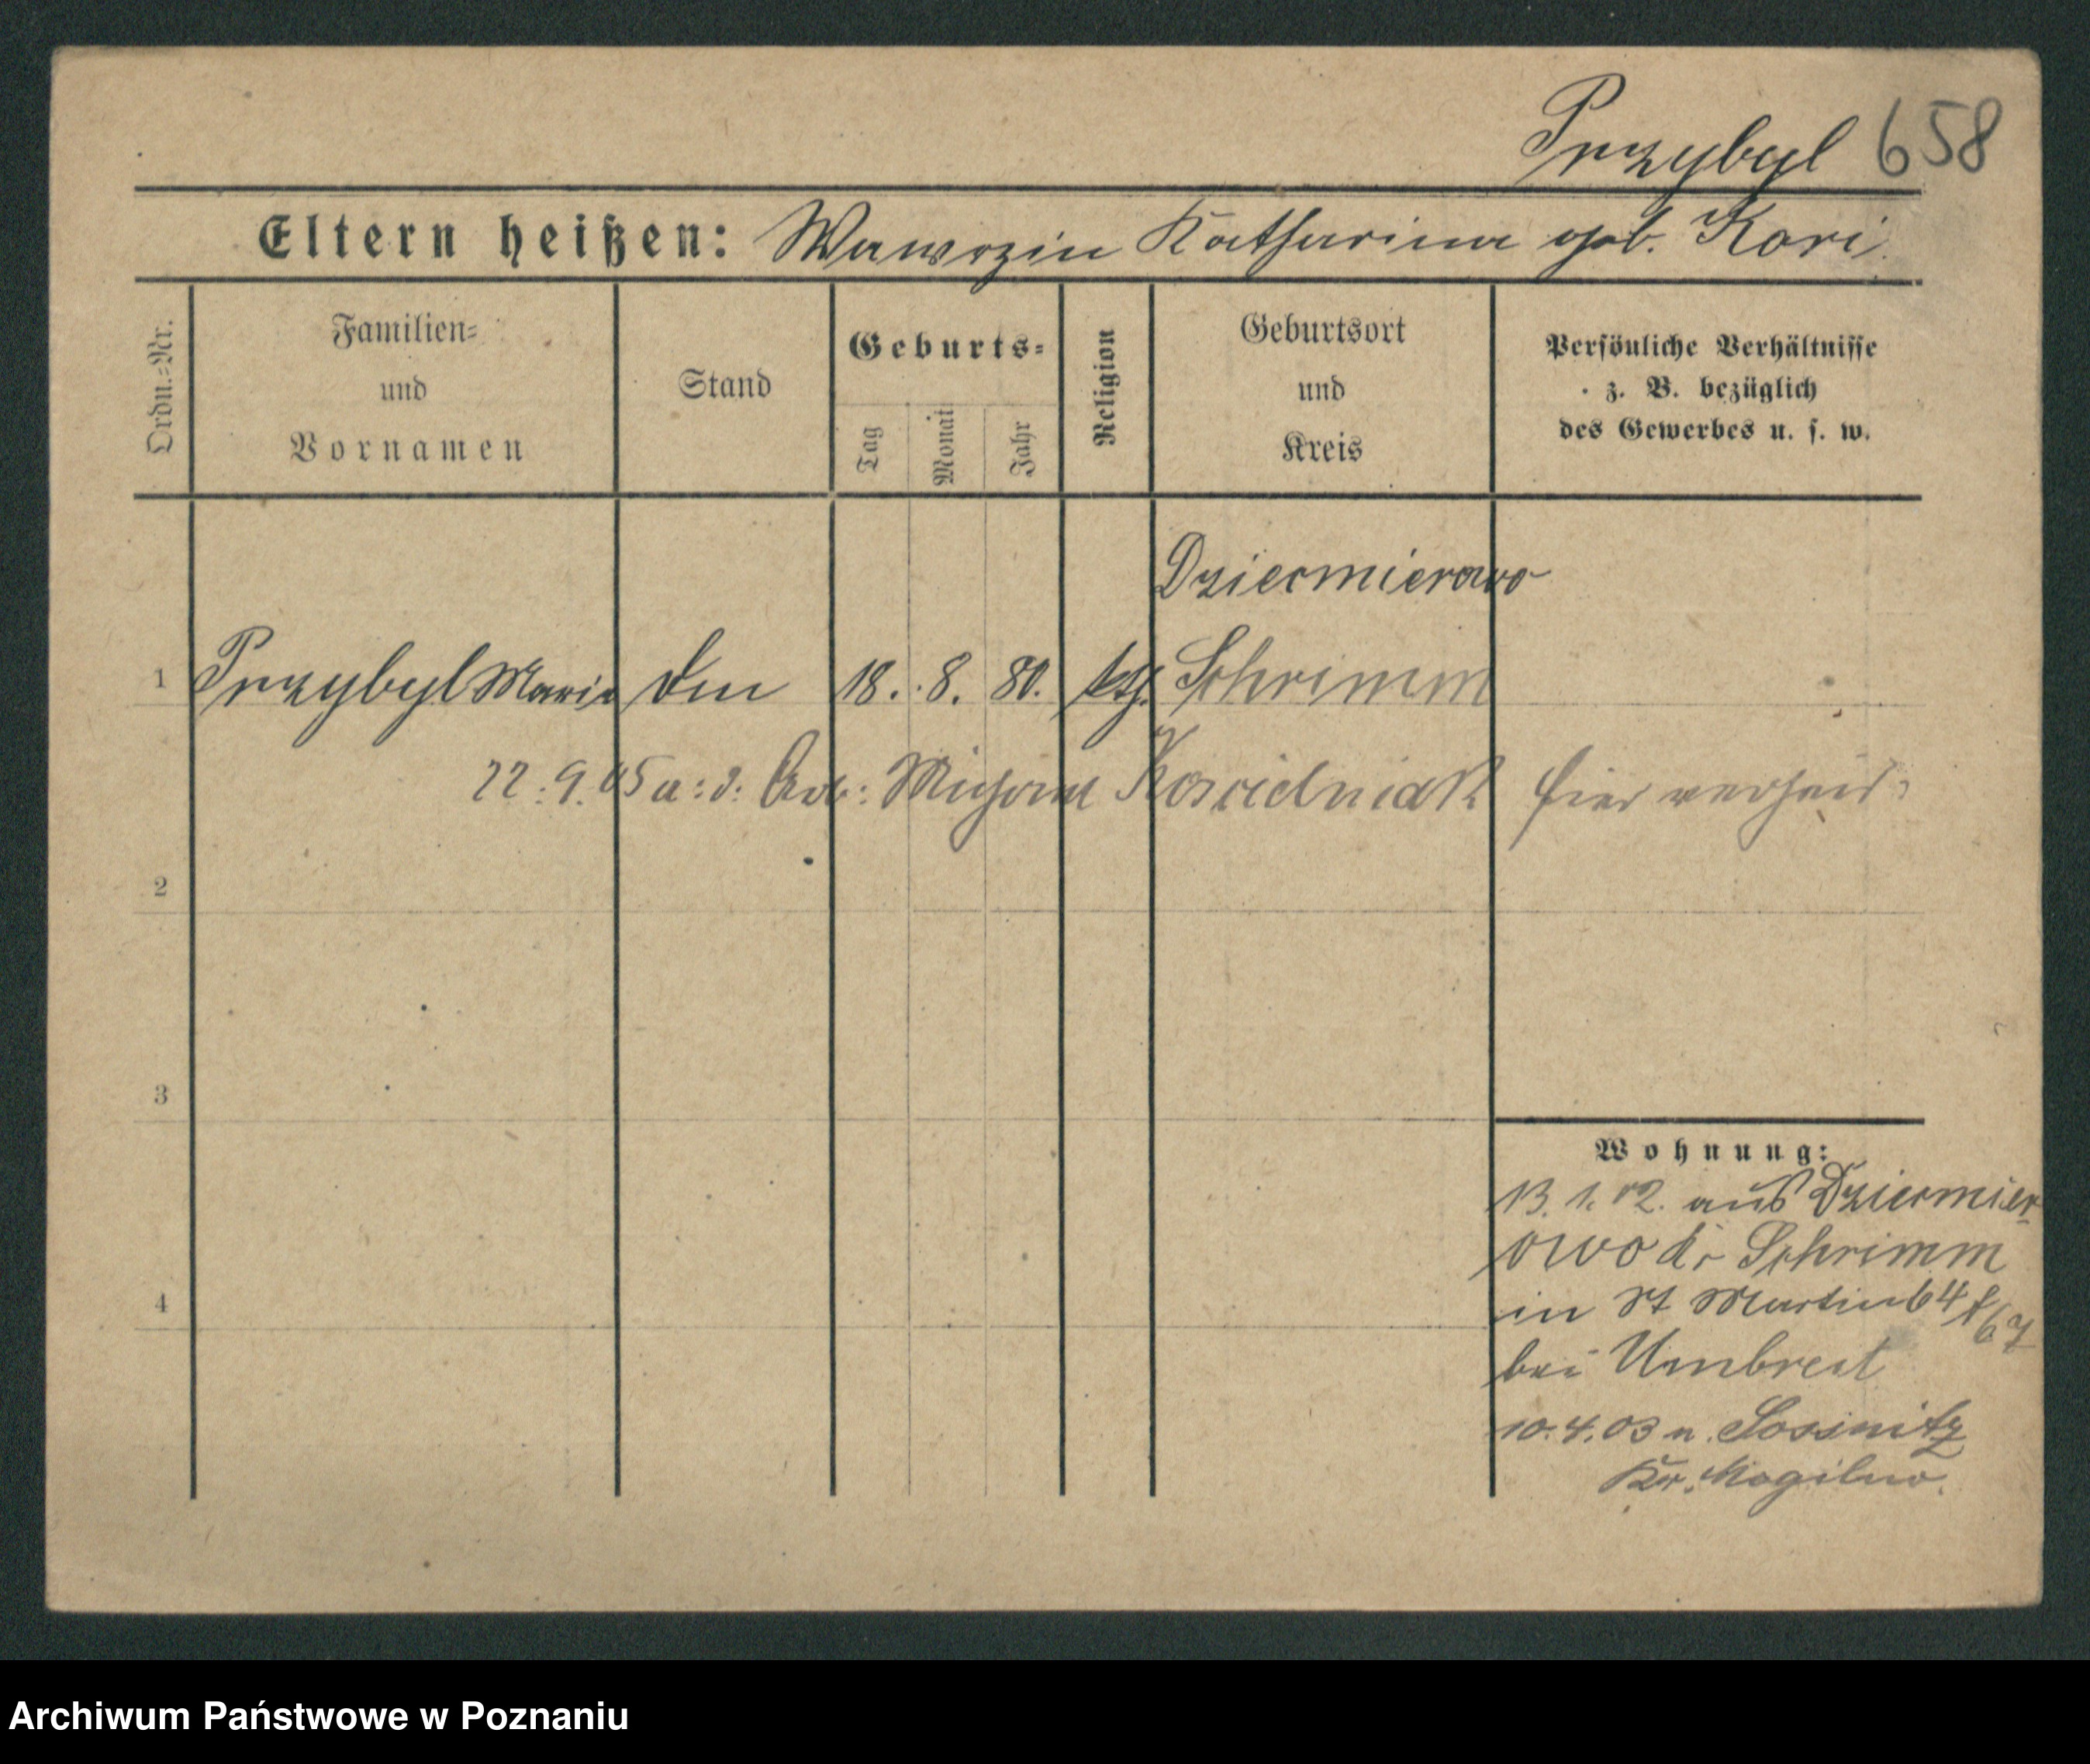 Przybyl 658
Eltern heißen: Wawrzin Katharina geb. Kori
Ordn.-Nr.
Familien-
und
Vornamen
Stand
Geburts-
Tag
Monat
Jahr
Religion
Geburtsort
und
Kreis
Persönliche Verhältnisse
z. B. bezüglich
des Gewerbes u. s. w.
Dziecmierowo
1 Przybyl Maria 18. 8. 80. kth. Schrimm
22.9.05 a: d: Arb: Koscielniak hier verheir.
2
3
4
Wohnung:
13. 1. 02. aus Dziecmier
owo Kr Schrimm
in St Martin 64
67
bei Umbreit
10.4.03 n. Lossnitz
Kr. Mogilno.
Archiwum Państwowe w Poznaniu